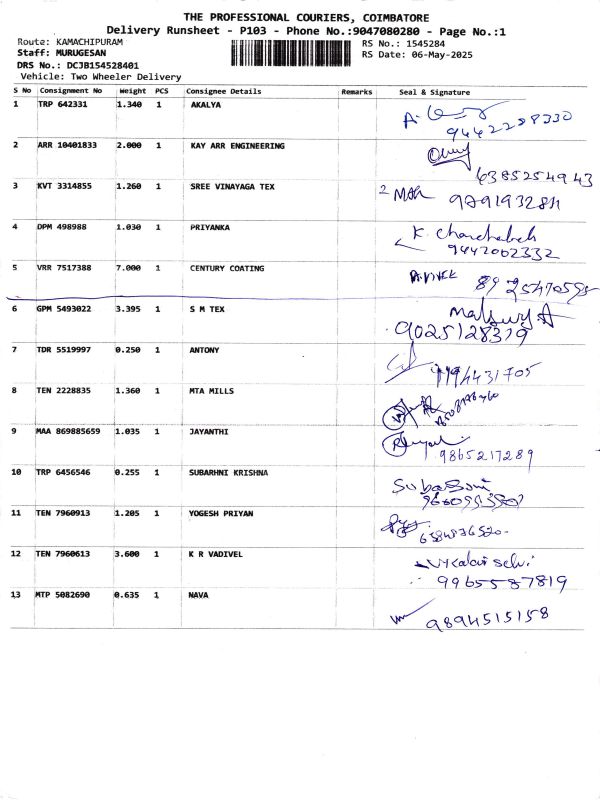 THE PROFESSIONAL COURIERS, COIMBATORE
Delivery Runsheet - P103 - Phone No.:9047080280 - Page No.:1
Route: KAMACHIPURAM RS No.: 1545284
Staff: MURUGESAN RS Date: 06-May-2025
DRS No.: DCJB154528401
Vehicle: Two Wheeler Delivery
S No Consignment No Weight PCS Consignee Details Remarks Seal & Signature
1 TRP 642331 1.340 1 AKALYA
9442288330
2 ARR 10401833 2.000 1 KAY ARR ENGINEERING
6385254943
3 KVT 3314855 1.260 1 SREE VINAYAGA TEX
9791932811
4 DPM 498988 1.030 1 PRIYANKA K.
9442002332
5 VRR 7517388 7.000 1 CENTURY COATING
8925470595
6 GPM 5493022 3.395 1 S M TEX
9025128319
7 TDR 5519997 0.250 1 ANTONY
8 TEN 2228835 1.360 1 MTA MILLS
9 MAA 869885659 1.035 1 JAYANTHI
9865217289
10 TRP 6456546 0.255 1 SUBARHNI KRISHNA
11 TEN 7960913 1.205 1 YOGESH PRIYAN
12 TEN 7960613 3.600 1 K R VADIVEL
9965587819
13 MTP 5082690 0.635 1 NAVA
9894515158